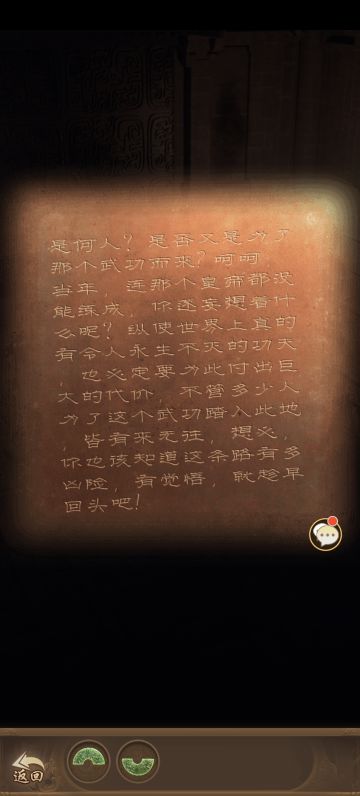 是何人？是否又是为了
那个武功而来？呵呵，
当年，连那个皇帝都没
能练成，你还妄想着什
么呢？纵使世界上真的
有令人永生不灭的功夫
，也必定要为此付出巨
大的代价，不管多少人
为了这个武功踏入此地
，皆有来无往，想必，
你也该知道这条路有多
凶险，有觉悟，就趁早
回头吧！
返回